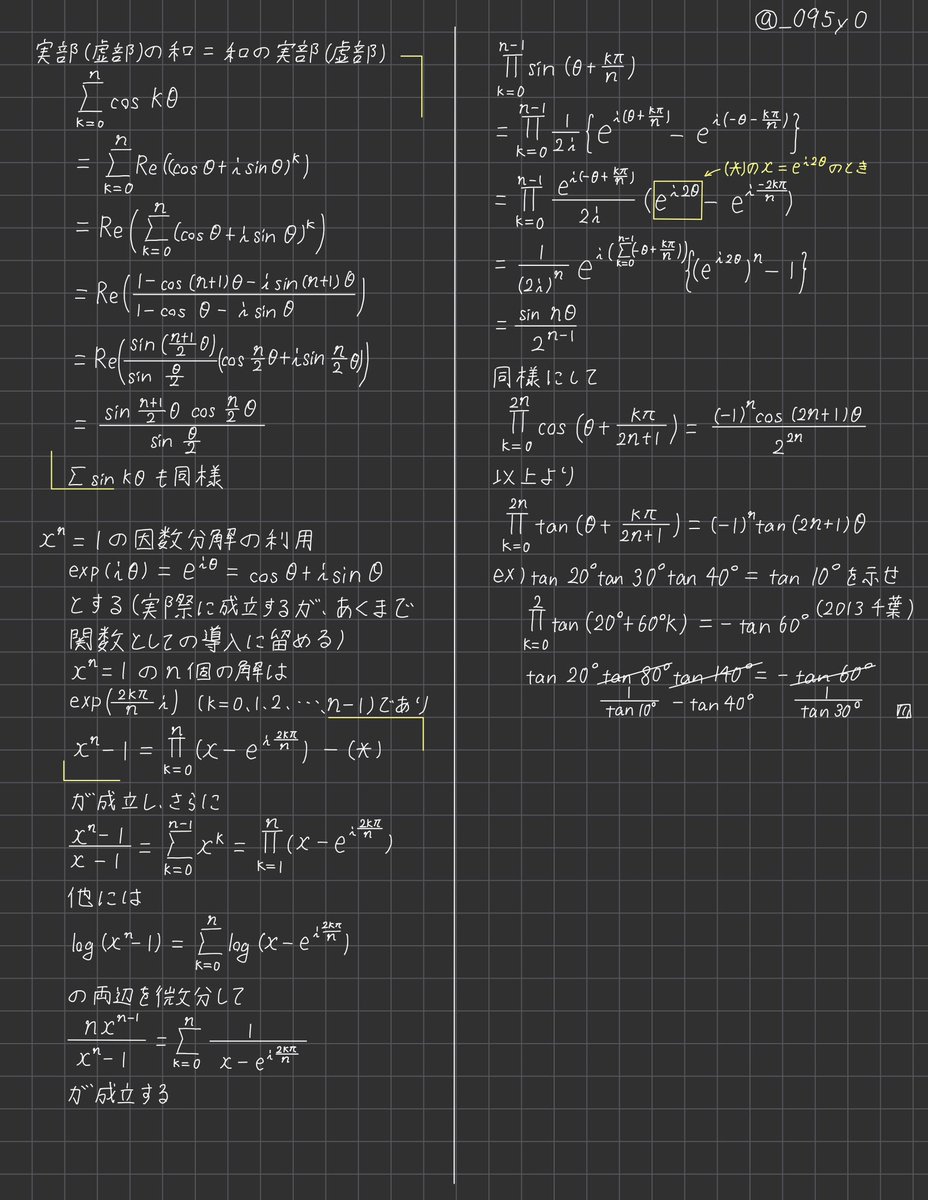 @_095y0
実部(虚部)の和 = 和の実部(虚部)
\sum_{k=0}^{n} cos kθ
= \sum_{k=0}^{n} Re((cos θ + i sin θ)^k)
= Re(\sum_{k=0}^{n} (cos θ + i sin θ)^k)
= Re(\frac{1-cos (n+1)θ - i sin (n+1)θ}{1-cos θ - i sin θ})
= Re(\frac{sin (\frac{n+1}{2}θ)}{sin \frac{θ}{2}}(cos \frac{n}{2}θ + i sin \frac{n}{2}θ))
= \frac{sin \frac{n+1}{2}θ cos \frac{n}{2}θ}{sin \frac{θ}{2}}
Σ sin kθ も同様
x^n = 1 の因数分解の利用
exp(iθ) = e^{iθ} = cos θ + i sin θ
とする(実際に成立するが、あくまで
関数としての導入に留める)
x^n = 1 の n個の解は
exp(\frac{2kπ}{n} i) (k=0、1、2、…、n-1)であり
x^n - 1 = \prod_{k=0}^{n} (x - e^{i\frac{2kπ}{n}}) - (*)
が成立し、さらに
\frac{x^n - 1}{x - 1} = \sum_{k=0}^{n-1} x^k = \prod_{k=1}^{n} (x - e^{i\frac{2kπ}{n}})
他には
log (x^n - 1) = \sum_{k=0}^{n} log (x - e^{i\frac{2kπ}{n}})
の両辺を微分して
\frac{nx^{n-1}}{x^n - 1} = \sum_{k=0}^{n} \frac{1}{x - e^{i\frac{2kπ}{n}}}
が成立する
\prod_{k=0}^{n-1} sin (θ + \frac{kπ}{n})
= \prod_{k=0}^{n-1} \frac{1}{2i} {e^{i(θ+\frac{kπ}{n})} - e^{i(-θ-\frac{kπ}{n})}}
(*)の x = e^{i2θ} のとき
= \prod_{k=0}^{n-1} \frac{e^{i(-θ+\frac{kπ}{n})}}{2i} (e^{i2θ} - e^{i\frac{-2kπ}{n}})
= \frac{1}{(2i)^n} e^{i(\sum_{k=0}^{n-1}(-θ+\frac{kπ}{n}))} {(e^{i2θ})^n - 1}
= \frac{sin nθ}{2^{n-1}}
同様にして
\prod_{k=0}^{2n} cos (θ + \frac{kπ}{2n+1}) = \frac{(-1)^n cos (2n+1)θ}{2^{2n}}
以上より
\prod_{k=0}^{2n} tan (θ + \frac{kπ}{2n+1}) = (-1)^n tan (2n+1)θ
ex) tan 20° tan 30° tan 40° = tan 10° を示せ
(2013 千葉)
\prod_{k=0}^{2} tan (20° + 60°k) = - tan 60°
tan 20° tan 80° tan 140° = - tan 60°
\frac{1}{tan 10°} - tan 40° \frac{1}{tan 30°}